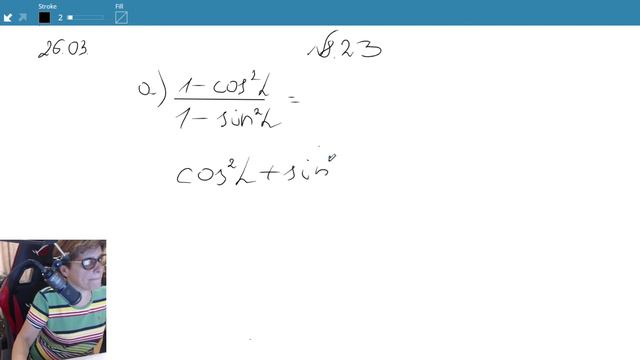 Stroke Fill
2
26.03 №8.23
a) (1 - cos²α)/(1 - sin²α) =
cos²α + sin